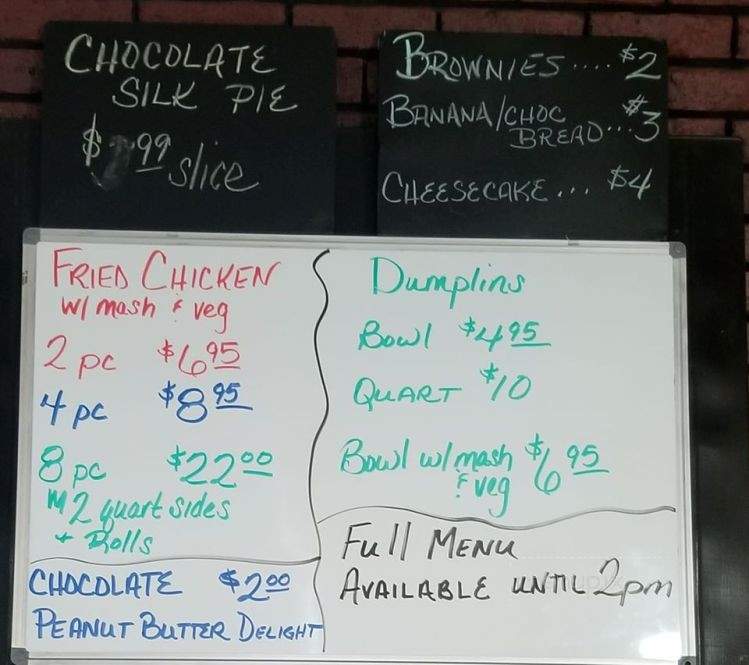 CHOCOLATE
SILK PIE
99 slice
BROWNIES.... $2
BANANA/CHOC
BREAD... $3
CHEESECAKE... $4
FRIED CHICKEN
w/ mash & veg
2 pc $6.95
4 pc $8.95
8 pc $22.00
2 quart sides
+ Rolls
CHOCOLATE $2.00
PEANUT BUTTER DELIGHT
Dumplins
Bowl $4.95
QUART $10
Bowl w/ mash $6.95
& veg
Full MENU
AVAILABLE UNTIL 2pm